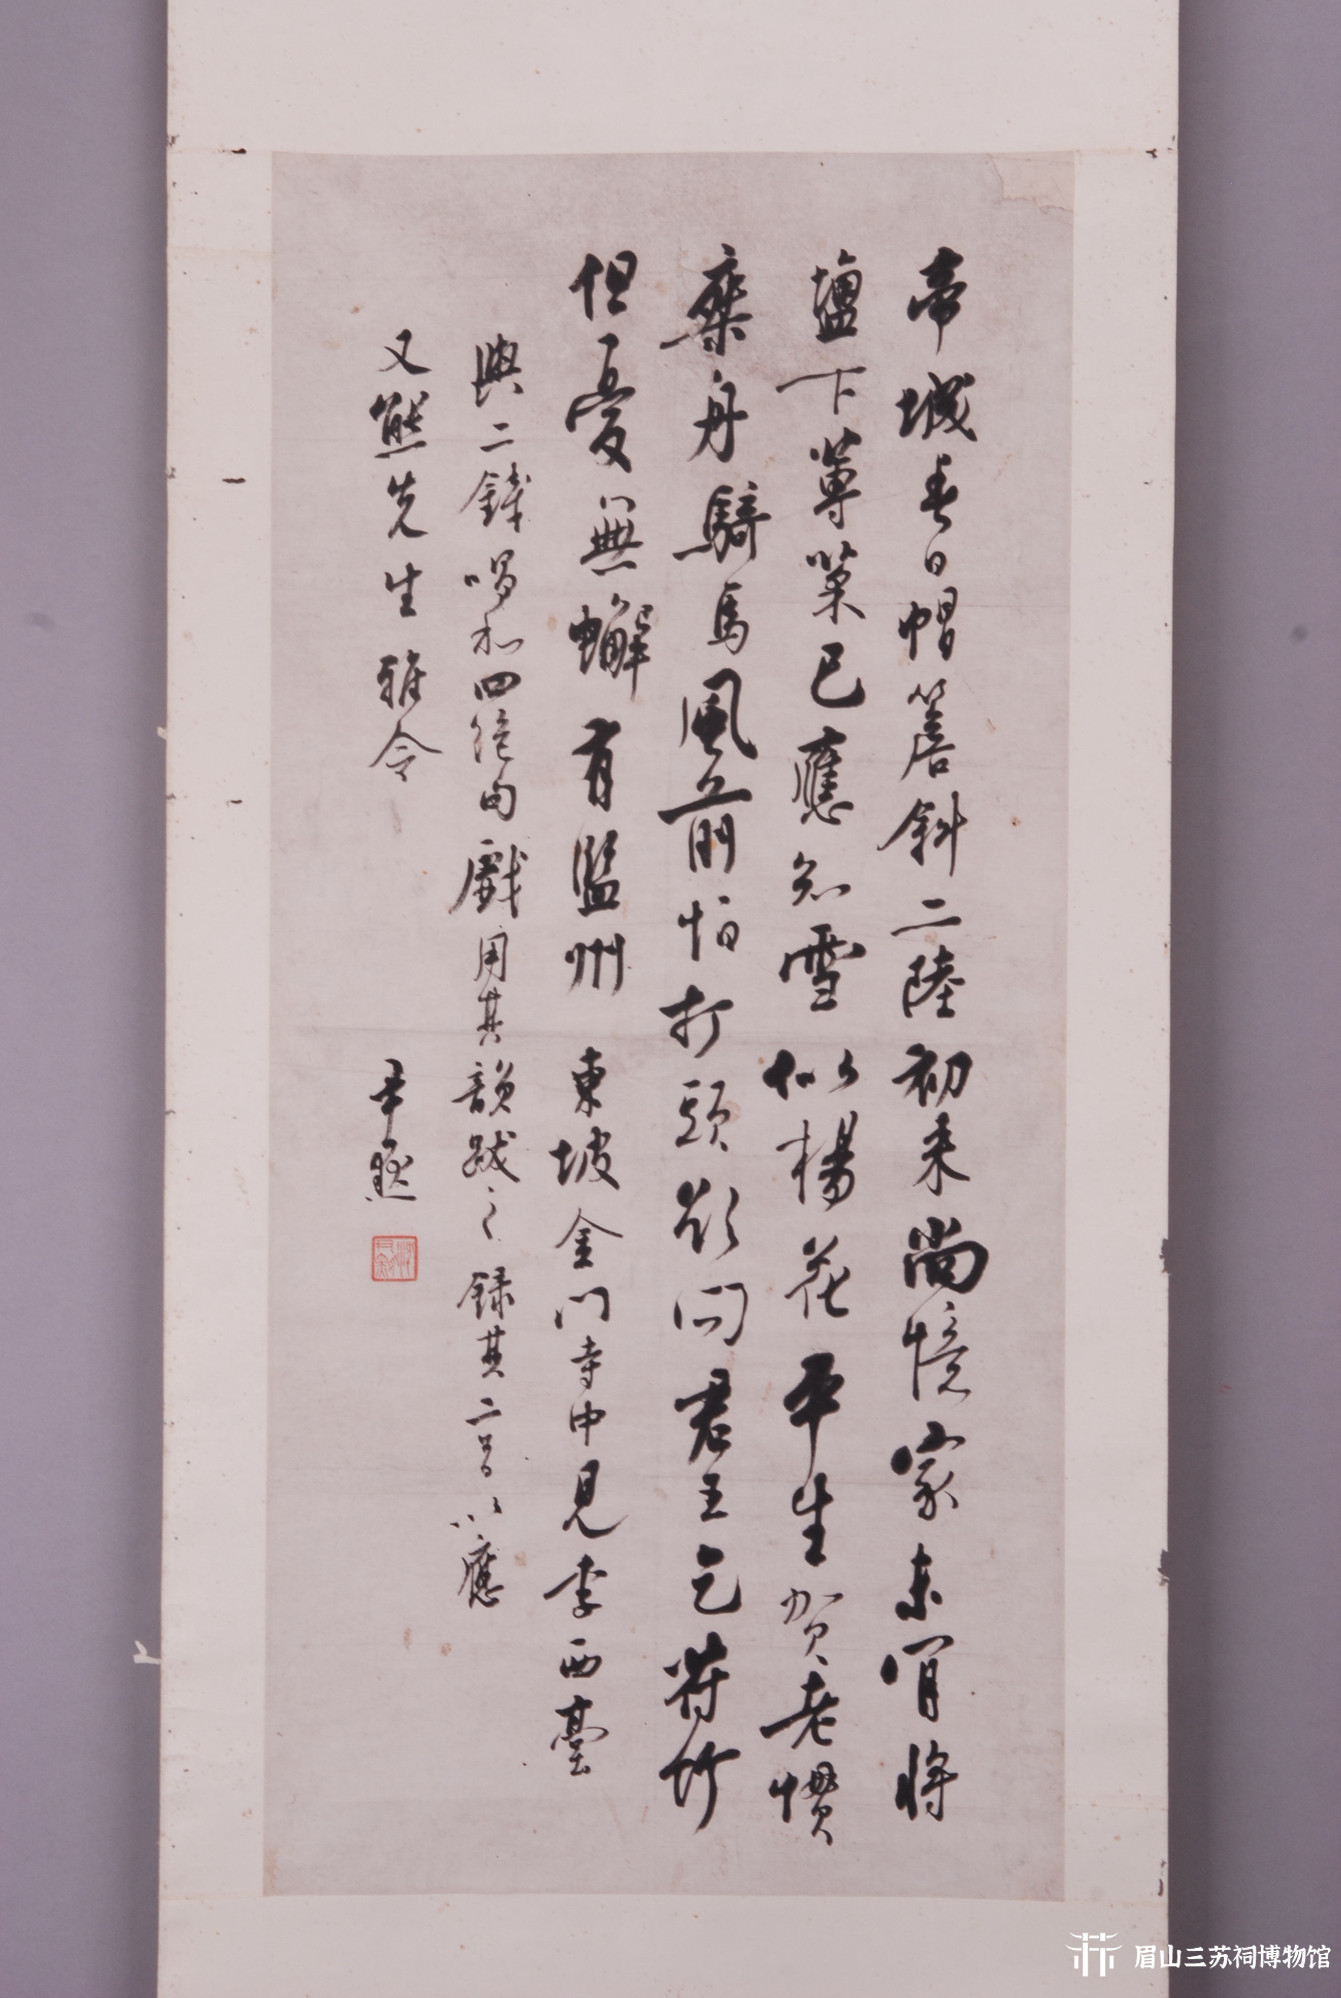 帝城春日帽簷斜二陸初来尚憶家未肎将
鹽下蓴菜已應知雪似楊花平生賀老慣
乘舟騎馬風前怕打頭欲問君王乞符竹
但憂無蠏有監州 東坡金門寺中見李西臺
與二錢唱和四絶句戲用其韻跋之錄其二首以應
又熊先生雅令
尹默
眉山三苏祠博物馆